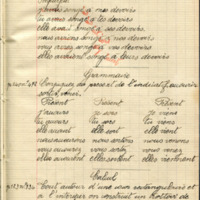 j'avais songé à mes devoirs
tu avais songé à tes devoirs
elle avait songé à ses devoirs
nous avions songé à nos devoirs
vous aviez songé à vos devoirs
elles avaient songé à leurs devoirs
Grammaire
Conjuguez au présent de l'indicatif ouvrir
sortir, venir
Présent Présent Présent
J'ouvre Je sors Je viens
tu ouvres tu sors tu viens
elle ouvre elle sort elle vient
nous ouvrons nous sortons nous venons
vous ouvrez vous sortez vous venez
elles ouvrent elles sortent elles viennent
Calcul
Tout autour d'une cour rectangulaire et
à l'intérieur on construit un trottoir de